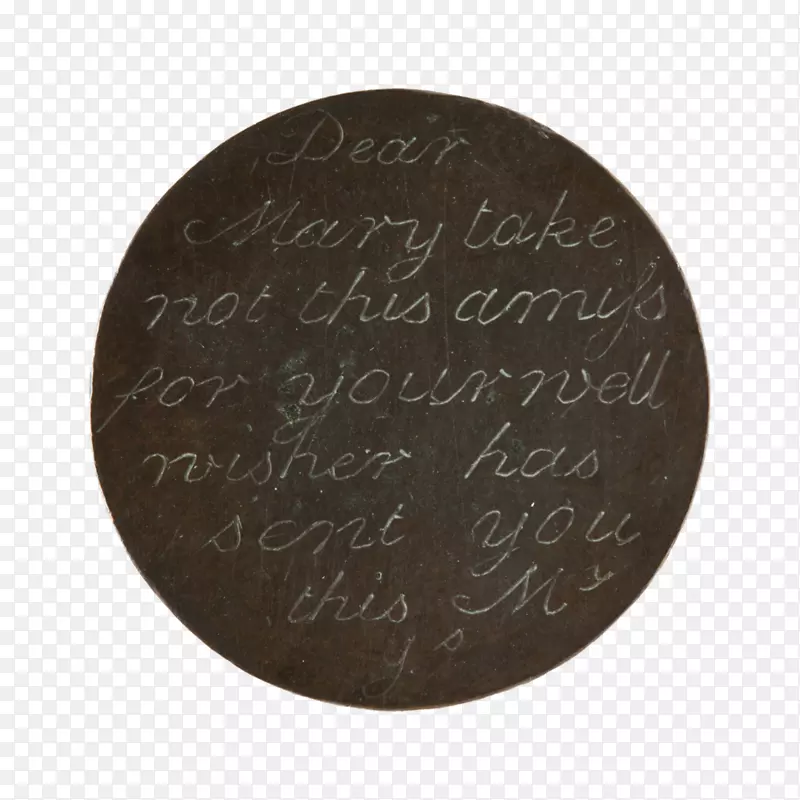 Dear
Mary take
not this amiſs
for your well
wisher has
sent you
this Mr
y s